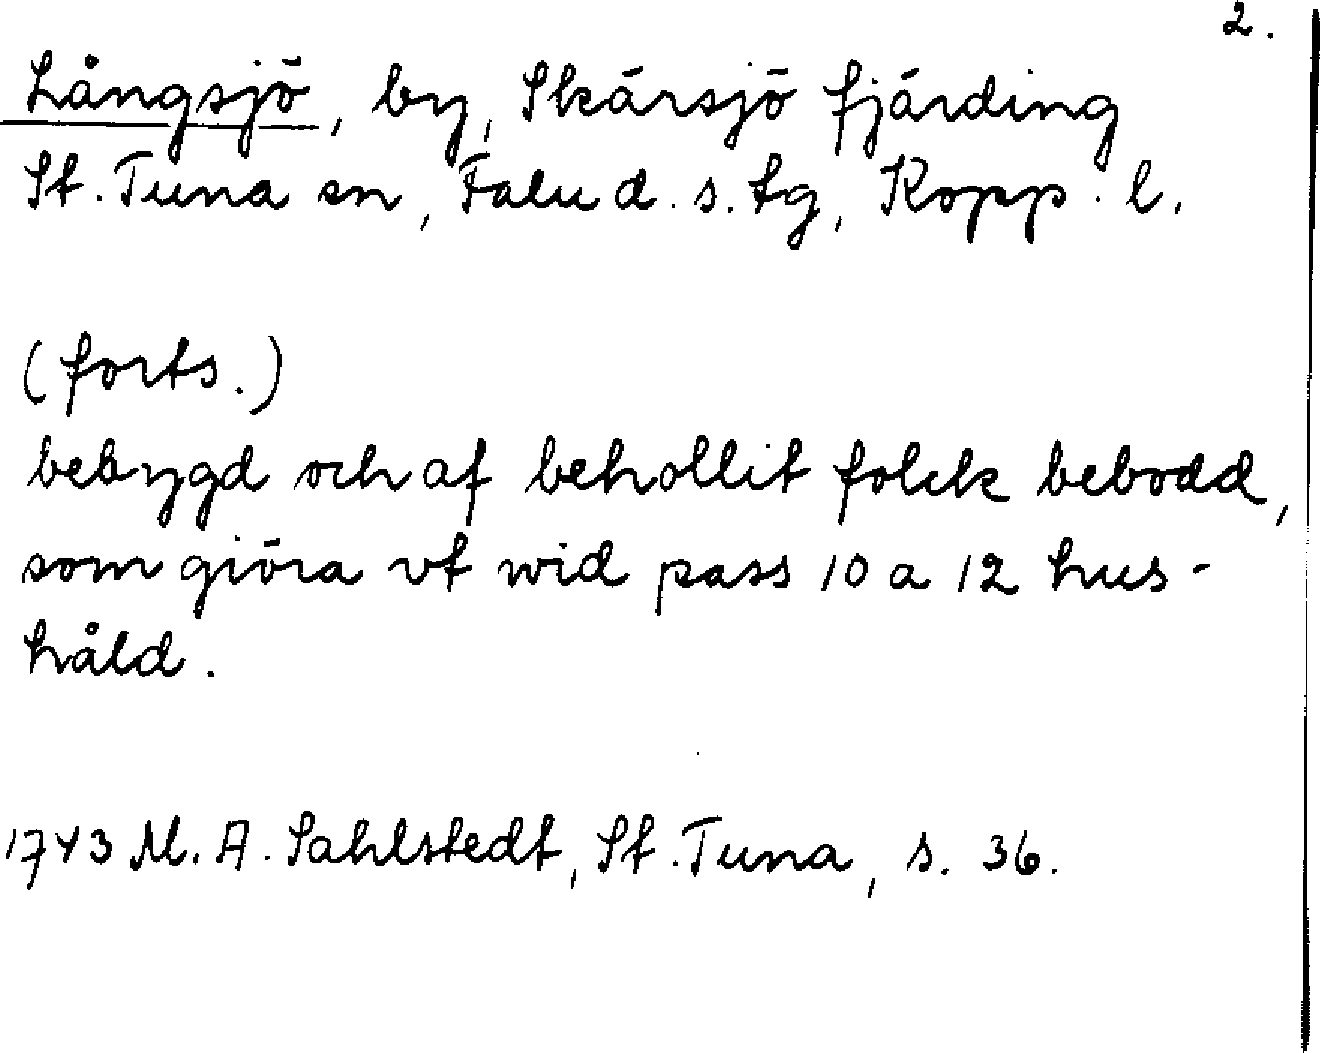 2.
Långsjö, by, Skärsjö fjärding
St. Tuna sn, Falu d. s. tg, Kopp. l.
(forts.)
bebygd och af behollit folck bebodd,
som giöra vt wid pass 10 a 12 hus-
håld.
1743 M. A. Sahlstedt, St. Tuna, s. 36.